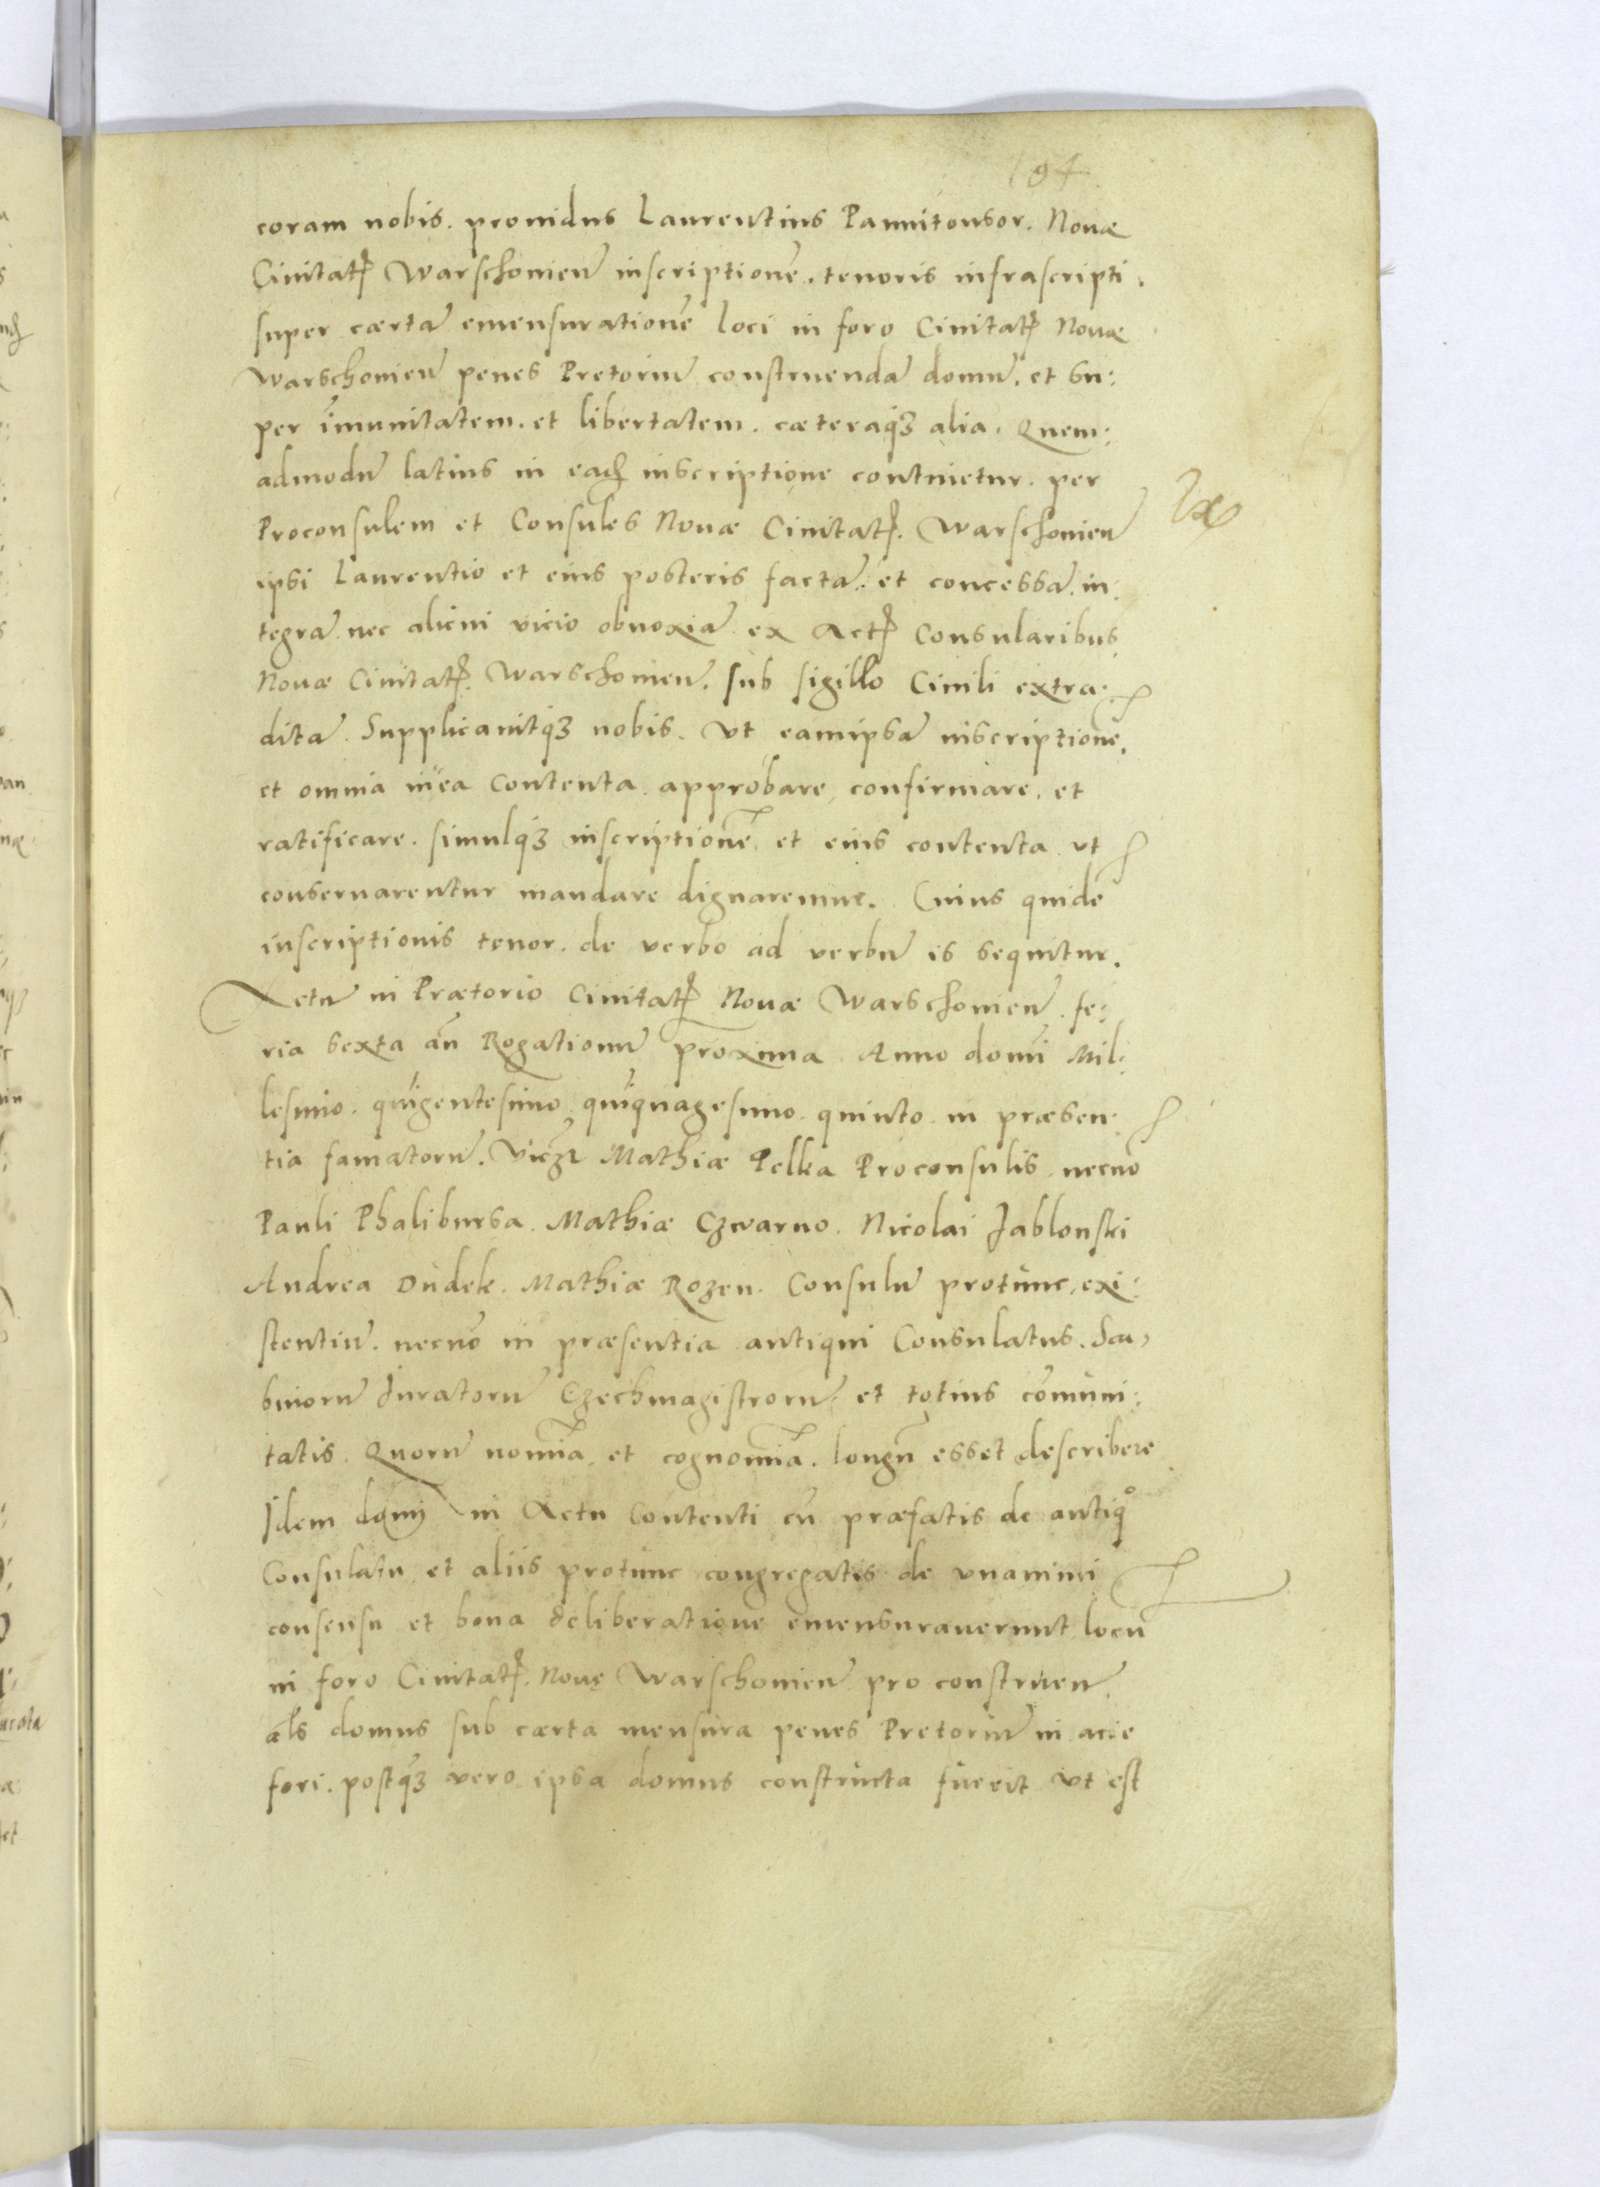 194.
coram nobis. prouidus Laurentius Pannitonsor. Nouæ
Ciuitatꝭ Warschouieñ inscriptionẽ. tenoris infrascripti.
super cærtã emensurationẽ loci in foro Ciuitatꝭ Nouæ
Warschouieñ penes Pretoriũ construendã domũ. et su:
per im̃unitatem. et libertatem. cæteraqꝫ alia. Quem:
admodũ latius in eadꝭ inscriptione continetur. per
Proconsulem et Consules Nouæ Ciuitatꝭ. Warschouieñ
ipsi Laurentio et eius posteris factã. et concessã. in:
tegrã. nec alicui vicio obnoxiã. ex Actꝭ Consularibus
Nouæ Ciuitatꝭ. Warschouieñ. sub sigillo Ciuili extra:
ditã. Supplicauitqꝫ nobis. Vt eamipsã inscriptionẽ.
et omnia in ea Contenta. approbare, confirmare. et
ratificare. simulqꝫ inscriptionẽ et eius contenta vt
conseruarentur mandare dignaremur. Cuius quidẽ
inscriptionis tenor. de verbo ad verbũ is sequitur.
Actũ in Prætorio Ciuitatꝭ Nouæ Warschouieñ. fe:
ria sexta añ Rogationũ proxima Anno domĩ Mil:
lesimo. quĩgentesimo quĩquagesimo quinto. in præsen:
tia famatorũ. Vicꝫ Mathiæ Pelka Proconsulis. necnõ
Pauli Phalibursa. Mathiæ Czwarno. Nicolai Jablonski
Andrea Dudek. Mathiæ Rozen. Consulũ protunc, exi:
stentiũ. necnõ in præsentia antiqui Consulatus. Sca,
binorũ Juratorũ Czechmagistrorũ et totius cõmuni:
tatis. Quorũ nomĩa et cognomĩa. longũ esset describere
Idem domĩ in Actu Contenti cũ præfatis de antiqͦ
Consulatu et aliis protunc congregatis de vnanimi
consensu et bona deliberatione emensurauerunt locũ
in foro Ciuitatꝭ. Nouę Warschouieñ pro construeñ
als domus sub cærta mensura penes Pretoriũ in acie
fori. postqꝫ vero ipsa domus constructa fuerit vt est